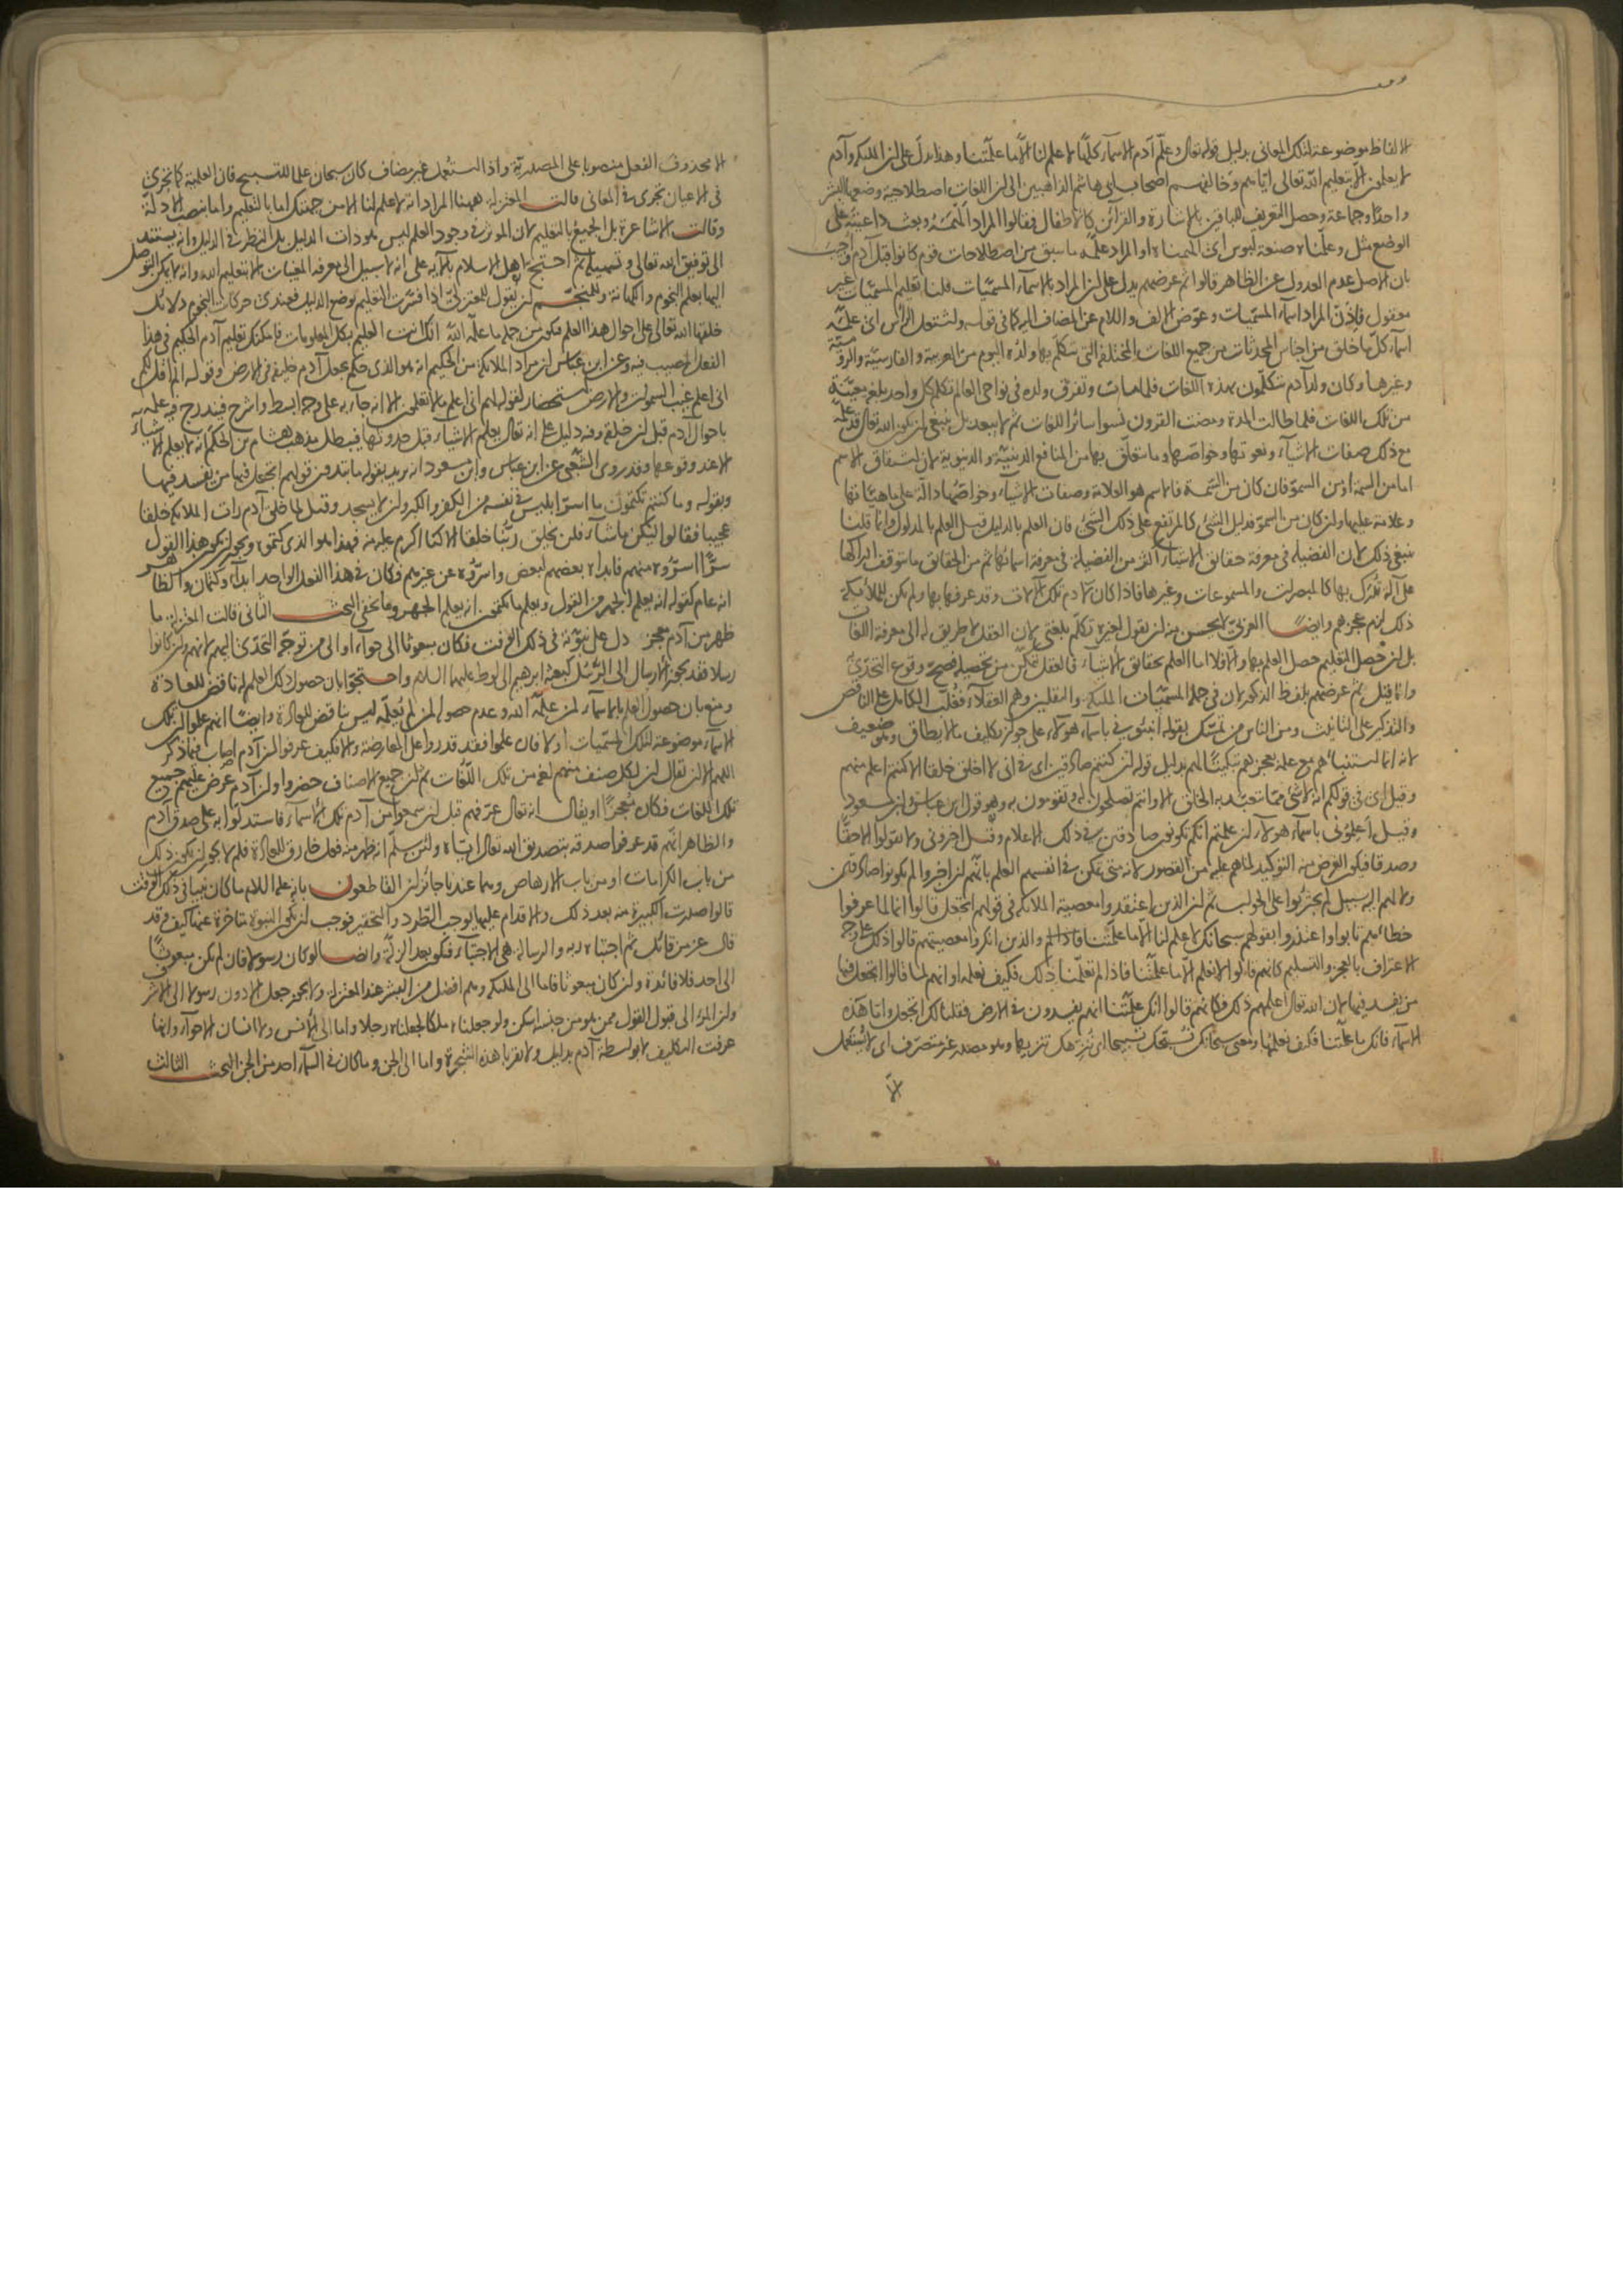 الالفاظ موضوعة لتلك المعانى بدليل قوله تعالى وعلم آدم الاسماء كلها لا علم لنا الا ما علمتنا وهذا يدل على ان الملئكة وآدم
لا يعلمون الا بتعليم الله تعالى اياهم وخالفهم اصحاب ابى هاشم الذاهبين الى ان اللغات اصطلاحية وضعها البشر
واحدا وجماعة وحصل التعريف للباقين بالاشارة والقرائن كالاطفال فقالوا المراد الهمه وبعث داعيته على
الوضع مثل وعلمناه صنعة لبوس اى الهمناه او المراد علمه ما سبق من اصطلاحات قوم كانوا قبل آدم واجيب
بان الاصل عدم العدول عن الظاهر قالوا ثم عرضهم يدل على ان المراد بالاسماء المسميات قلنا تعليم المسميات غير
معقول فاذن المراد اسماء المسميات وعوض الالف واللام عن المضاف اليه كما فى قوله واشتعل الراس اى علمه
اسماء كل ما خلق من اجناس المحدثات من جميع اللغات المختلفة التى يتكلم بها ولده اليوم من العربية والفارسية والرومية
وغيرها وكان ولد آدم يتكلمون بهذه اللغات فلما مات وتفرق ولده فى نواحى العالم تكلم كل واحد بلغة معينة
من تلك اللغات فلما طالت المدة ومضت القرون نسوا سائر اللغات ثم لا يبعد بل ينبغى ان يكون الله تعالى قد علمه
مع ذلك صفات الاشياء ونعوتها وخواصها وما يتعلق بها من المنافع الدينية والدنيوية لان اشتقاق الاسم
اما من السمة او من السمو فان كان من السمة فالاسم هو العلامة وصفات الاشياء وخواصها دالة على ماهياتها
وعلامة عليها وان كان من السمو فدليل الشئ كالمرتفع على ذلك الشئ فان العلم بالدليل قبل العلم بالمدلول وانما قلنا
ينبغى ذلك لان الفضيلة فى معرفة حقائق الاشياء اكثر من الفضيلة فى معرفة اسمائها ثم من الحقائق ما يتوقف ادراكها
على آلة تدرك بها كالمبصرات والمسموعات وغيرها فاذا كان لآدم تلك الآلات وقد عرفها بها ولم تكن للملائكة
ذلك لزم عجزهم وايضا العربى لا يحسن منه ان يقول لغيره تكلم بلغتى لان العقل لا طريق له الى معرفة اللغات
بل ان حصل التعليم حصل العلم بها والا فلا اما العلم بحقائق الاشياء فالعقل متمكن من تحصيله فصح وقوع التحدى
وانما قيل ثم عرضهم بلفظ الذكور لان فى جملة المسميات الملئكة والثقلين وهم العقلاء فغلب الكامل على الناقص
والتذكير على التانيث ومن الناس من تمسك بقوله انبئونى باسماء هولاء على جواز تكليف ما لا يطاق وهو ضعيف
لانه انما استنبأهم مع علمه بعجزهم تبكيتا لهم بدليل قوله ان كنتم صادقين اى فى انى لا اخلق خلقا الا كنتم اعلم منهم
وقيل اى فى قولكم انه لا شئ مما تتعبد به الخلق الا وانتم تصلحون له وتقومون به وهو قول ابن عباس وابن مسعود
وقيل اعلمونى باسماء هولاء ان علمتم انكم تكونون صادقين فى ذلك الاعلام وقيل اخبرونى ولا تقولوا الا حقا
وصدقا فيكون الغرض منه التوكيد لما هم عليه من القصور لانه متى تمكن فى انفسهم العلم بانهم ان اخبروا لم يكونوا صادقين
ولا لهم اليه سبيل لم يجترئوا على الجواب ثم ان الذين اعتقدوا معصية الملائكة فى قولهم اتجعل قالوا انما لما عرفوا
خطاءهم تابوا واعتذروا بقولهم سبحانك لا علم لنا الا ما علمتنا والذين انكروا معصيتهم قالوا ذلك على وجه
الاعتراف بالعجز والتسليم كانهم قالوا لا نعلم الا ما علمتنا فاذا لم تعلمنا ذلك فكيف نعلمه او انهم لما قالوا اتجعل فيها
من يفسد فيها لان الله تعالى اعلمهم ذلك فكانهم قالوا انك علمتنا انهم يفسدون فى الارض فقلنا لك اتجعل واما هذه
الاسماء فانك ما علمتنا فكيف نعلمها ومعنى سبحانك نسبحك تسبيحا اى ننزهك تنزيها وهو مصدر غير متصرف اى لا يستعمل
الا
الا محذوف الفعل منصوبا على المصدرية واذا استعمل غير مضاف كان سبحان علما للتسبيح فان العلمية كما تجرى
فى الاعيان تجرى فى المعانى قالت المعتزلة ههنا المراد انه لا علم لنا الا من جهتك اما بالتعليم واما بنصب الادلة
وقالت الاشاعرة بل الجميع بالتعليم لان الموثر فى وجود العلم ليس هو ذات الدليل بل النظر فى الدليل وانه يستند
الى توفيق الله تعالى وتسهيله ثم احتج اهل الاسلام بالآية على انه لا سبيل الى معرفة المغيبات الا بتعليم الله وانه لا يمكن التوصل
اليها بعلم النجوم والكهانة وللمنجم ان يقول للمعتزلى اذا فسرت التعليم بوضع الدليل فعندى حركات النجوم دلائل
خلقها الله تعالى على احوال هذا العلم فيكون من جملة ما علمه الله انك انت العليم بكل المعلومات فامكنك تعليم آدم الحكيم فى هذا
الفعل المصيب فيه وعن ابن عباس ان مراد الملائكة من الحكيم انه هو الذى حكم بجعل آدم خليفة فى الارض وقوله الم اقل لكم
انى اعلم غيب السموات والارض استحضار لقوله لهم انى اعلم ما لا تعلمون الا انه جاء به على وجه ابسط واشرح فيندرج فيه علمه
باحوال آدم قبل ان خلقه وفيه دليل على انه تعالى يعلم الاشياء قبل حدوثها فيبطل مذهب هشام بن الحكم انه لا يعلم الاشياء
الا عند وقوعها وقد روى الشعبى عن ابن عباس وابن مسعود انه يريد بقوله ما تبدون قولهم اتجعل فيها من يفسد فيها
وبقوله وما كنتم تكتمون ما اسر ابليس فى نفسه من الكفر والكبر وان لا يسجد وقيل لما خلق آدم رات الملائكة خلقا
عجيبا فقالوا ليكن ما شاء فلن يخلق ربنا خلقا الا كنا اكرم عليه منه فهذا هو الذى كتموه ويجوز ان يكون هذا القول
سرا اسروه بينهم فابداه بعضهم لبعض واسروه عن غيرهم فكان فى هذا الفعل الواحد ابداء وكتمان والظاهر
انه عام كقوله انه يعلم الجهر من القول ويعلم ما تكتمون انه يعلم الجهر وما يخفى البحث الثانى قالت المعتزلة ما
ظهر من آدم معجز دل على نبوته فى ذلك الوقت فكان مبعوثا الى حواء او الى من توجه التحدى اليهم لانهم وان كانوا
رسلا فقد يجوز الارسال الى الرسل كبعثة ابرهيم الى لوط عليهما السلام واحتجوا بان حصول ذلك العلم له ناقض للعادة
ومنع بان حصول العلم بالاسماء لمن علمه الله وعدم حصوله لمن لم يعلمه ليس بناقض للعادة وايضا انهم علموا ان تلك
الاسماء موضوعة لتلك المسميات اولا فان علموا فقد قدروا على المعارضة والا فكيف عرفوا ان آدم اصاب فيما ذكر
اللهم الا ان يقال ان لكل صنف منهم لغة من تلك اللغات ثم ان جميع الاصناف حضروا وان آدم عرض عليهم جميع
تلك اللغات فكان معجزا او يقال انه تعالى عرفهم قبل ان سمعوا من آدم تلك الاسماء فاستدلوا به على صدق آدم
والظاهر انهم قد عرفوا صدقه بتصديق الله تعالى اياه ولئن سلم انه ظهر منه فعل خارق للعادة فلم لا يجوز ان يكون ذلك
من باب الكرامات او من باب الارهاص وهما عندنا جائزان القاطعون بانه عليه السلام ما كان نبيا فى ذلك الوقت
قالوا صدرت الكبيرة منه بعد ذلك والاقدام عليها يوجب الطرد والتحقير فوجب ان تكون النبوة متاخرة عنها كيف وقد
قال عز من قائل ثم اجتباه ربه والرسالة هى الاجتباء فيكون بعد الزلة وايضا لو كان رسولا فان لم يكن مبعوثا
الى احد فلا فائدة وان كان مبعوثا فاما الى الملئكة وهم افضل من البشر عند المعتزلة ولا يجوز جعل الادون رسولا الى الاشرف
وان المرء الى قبول القول ممن هو من جنسه امكن ولو جعلناه ملكا لجعلناه رجلا واما الى الانس ولا انسان الا حواء وانها
عرفت التكليف لا بواسطة آدم بدليل ولا تقربا هذه الشجرة واما الى الجن وما كان فى السماء احد من الجن البحث الثالث